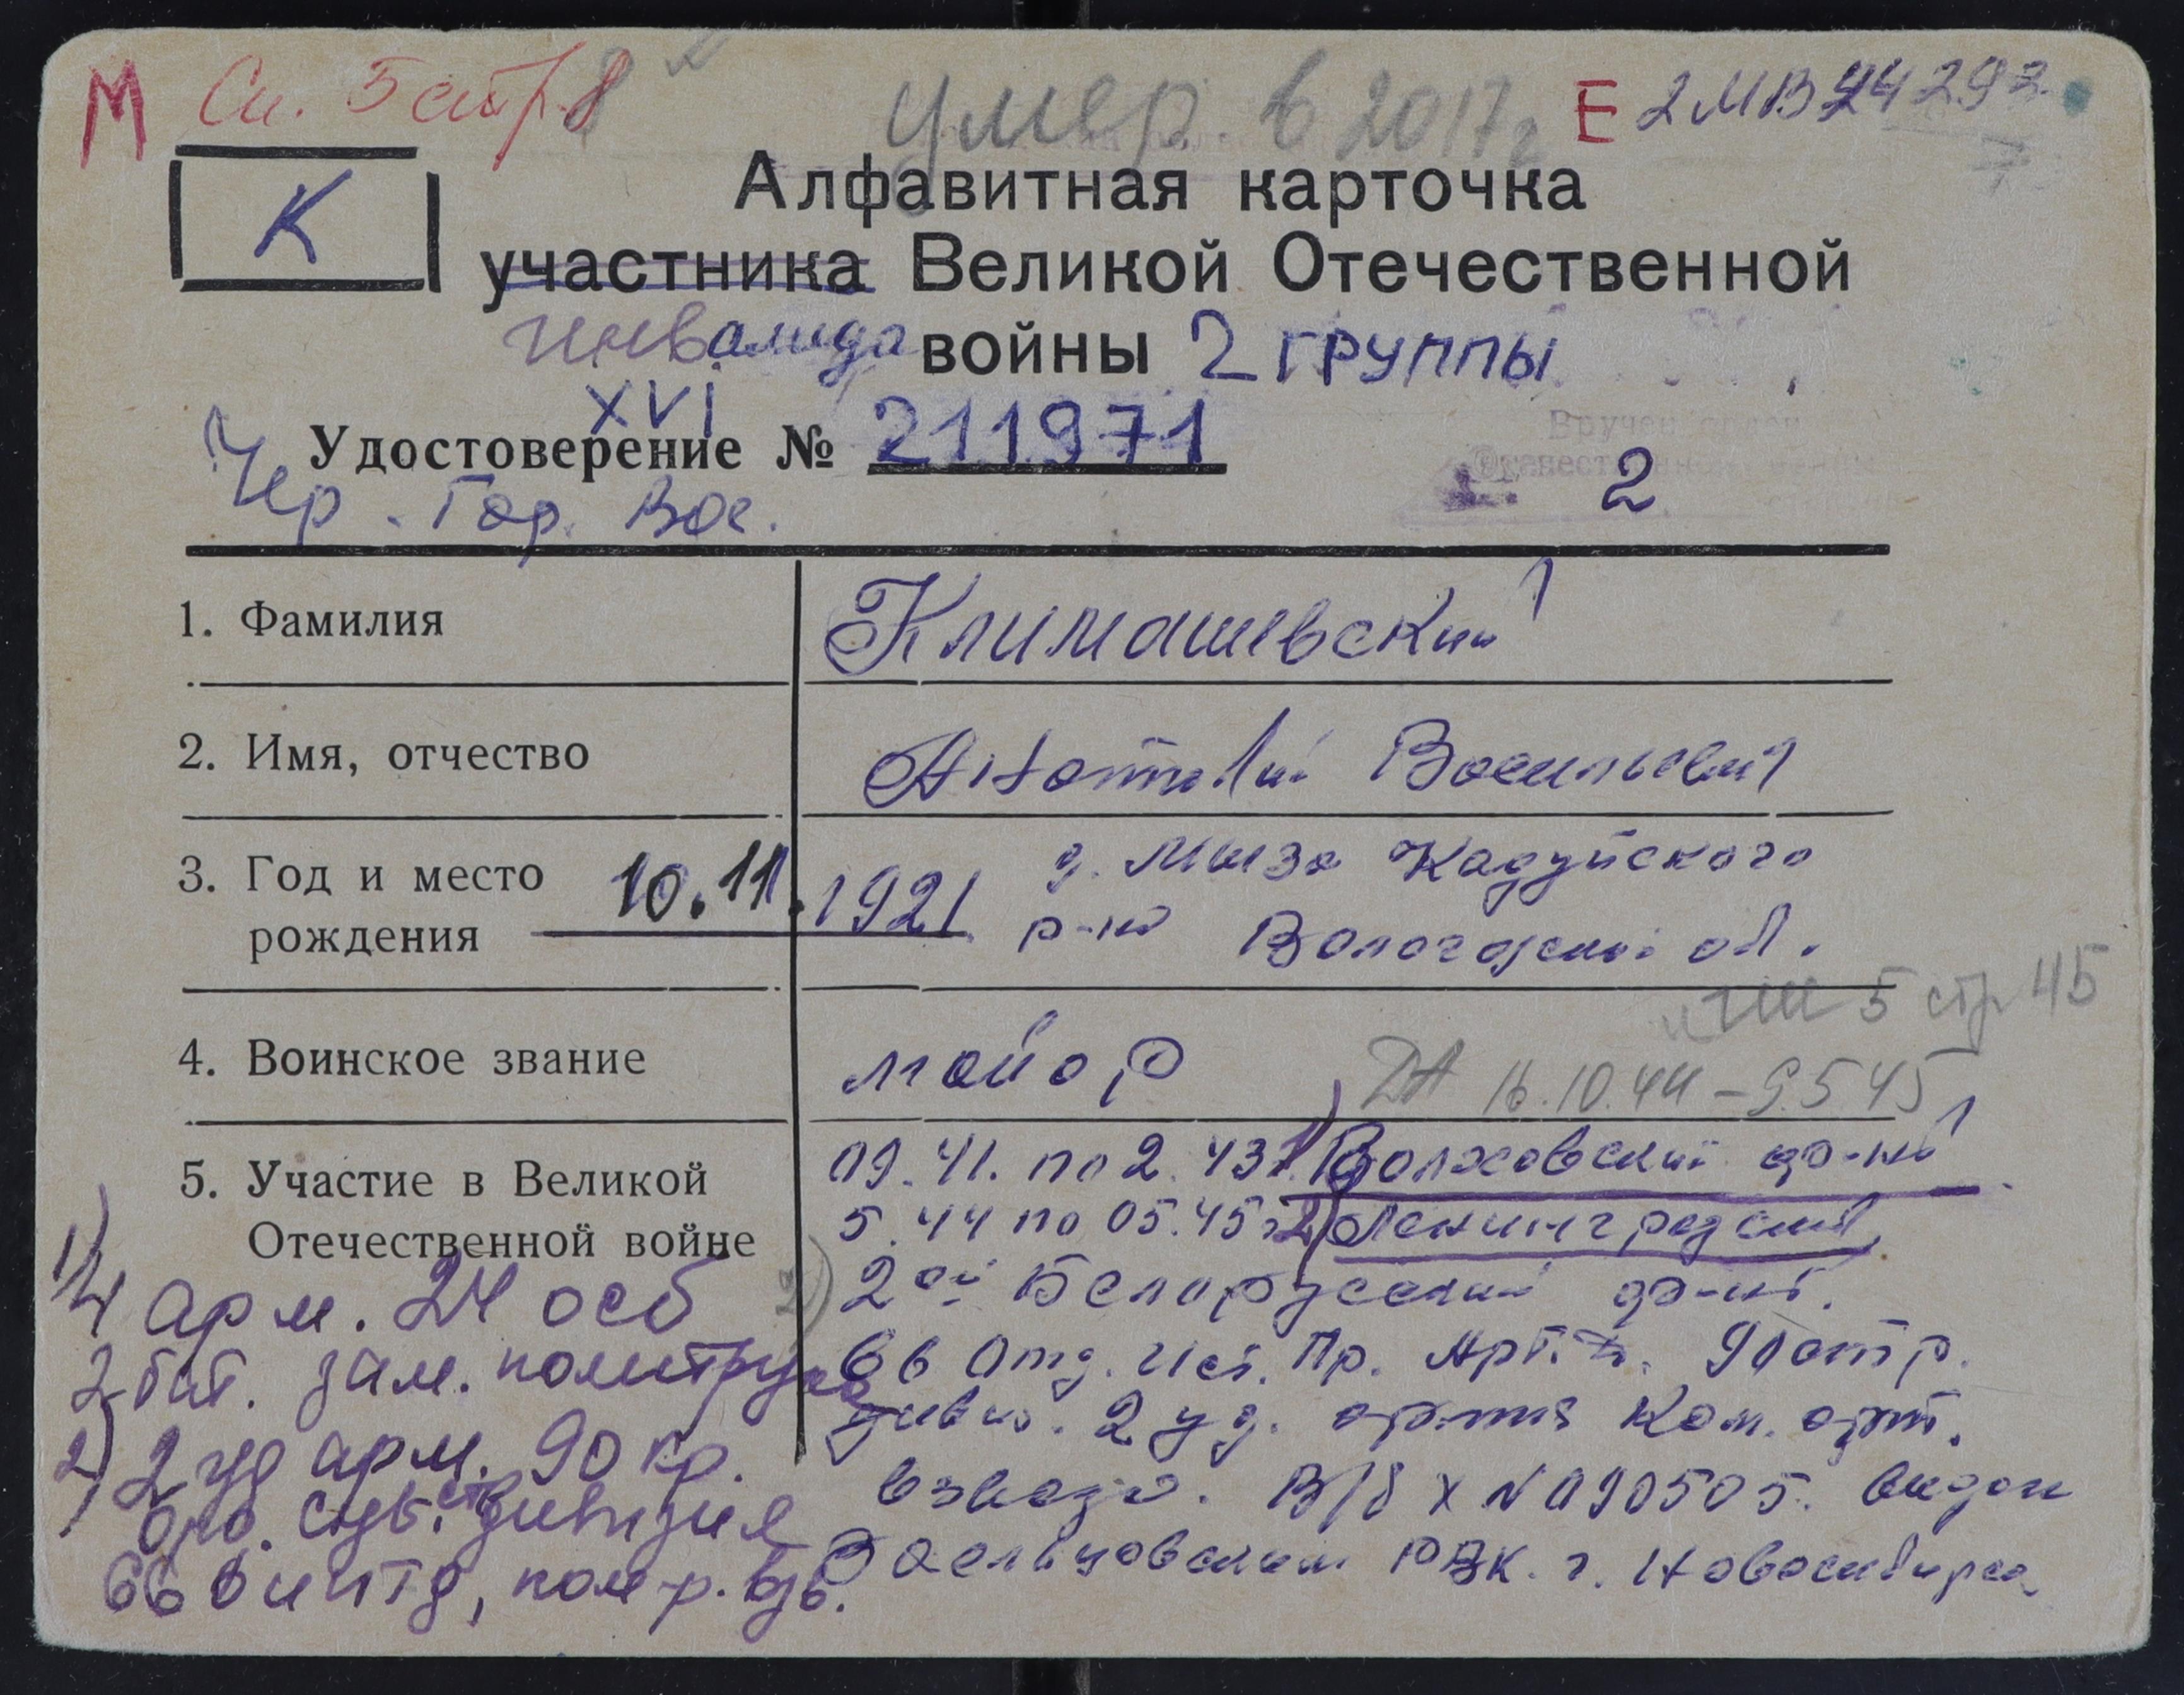 М Сп. 5 стр. 8
умер. в 2017г
Е 2МВ 24 293
К
Алфавитная карточка
участника Великой Отечественной
инвалида войны 2 группы
XVI
Удостоверение № 211971
Чер. Гор. Вое.
Вручен орден
Отечественной
2
1. Фамилия Климашевский
2. Имя, отчество Анатолий Васильевич
3. Год и место рождения 10.11.1921 д. Мыза Кадуйского
р-на Вологодской обл.
5 стр 45
4. Воинское звание майор
ДА 16.10.44 – 9.5 45
5. Участие в Великой Отечественной войне
09.41. по 2.43г. 1) Волховский фр-нт
5.44 по 05.45г 2) Ленинградский
2ой Белорусский фр-нт.
66 Отд. Ист. Пр. Арт.
дивиз. 2 уд. армия Ком. арт.
взвода. В/б Х № 090505. выдан
Заельцовским РВК. г. Новосибирска
1) 4 арм. 24 осб
2 бат. зам. политрука
2) 2 уд арм. 90 кр.
стр. дивизия
66 оиптд, ком р. взв.